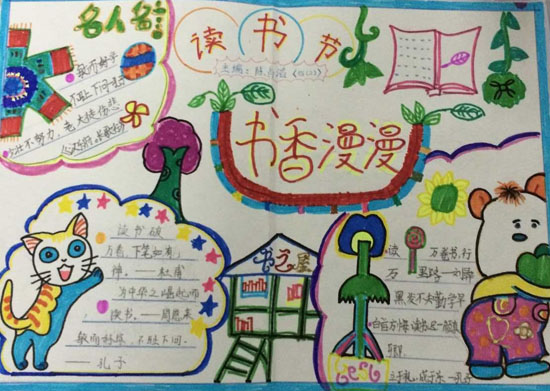 名人名言
敏而好学
不耻下问
不努力，老大徒伤悲
读书节
主编：陈
书香漫漫
读书破
万卷，下笔如有
神。——杜甫
为中华之崛起而
读书。——周恩来
敏而好学，不耻下问。
——孔子
书之屋
读 万卷书，行
万 里路——刘彝
黑发不知勤学早
白首方悔读书迟——颜真
卿